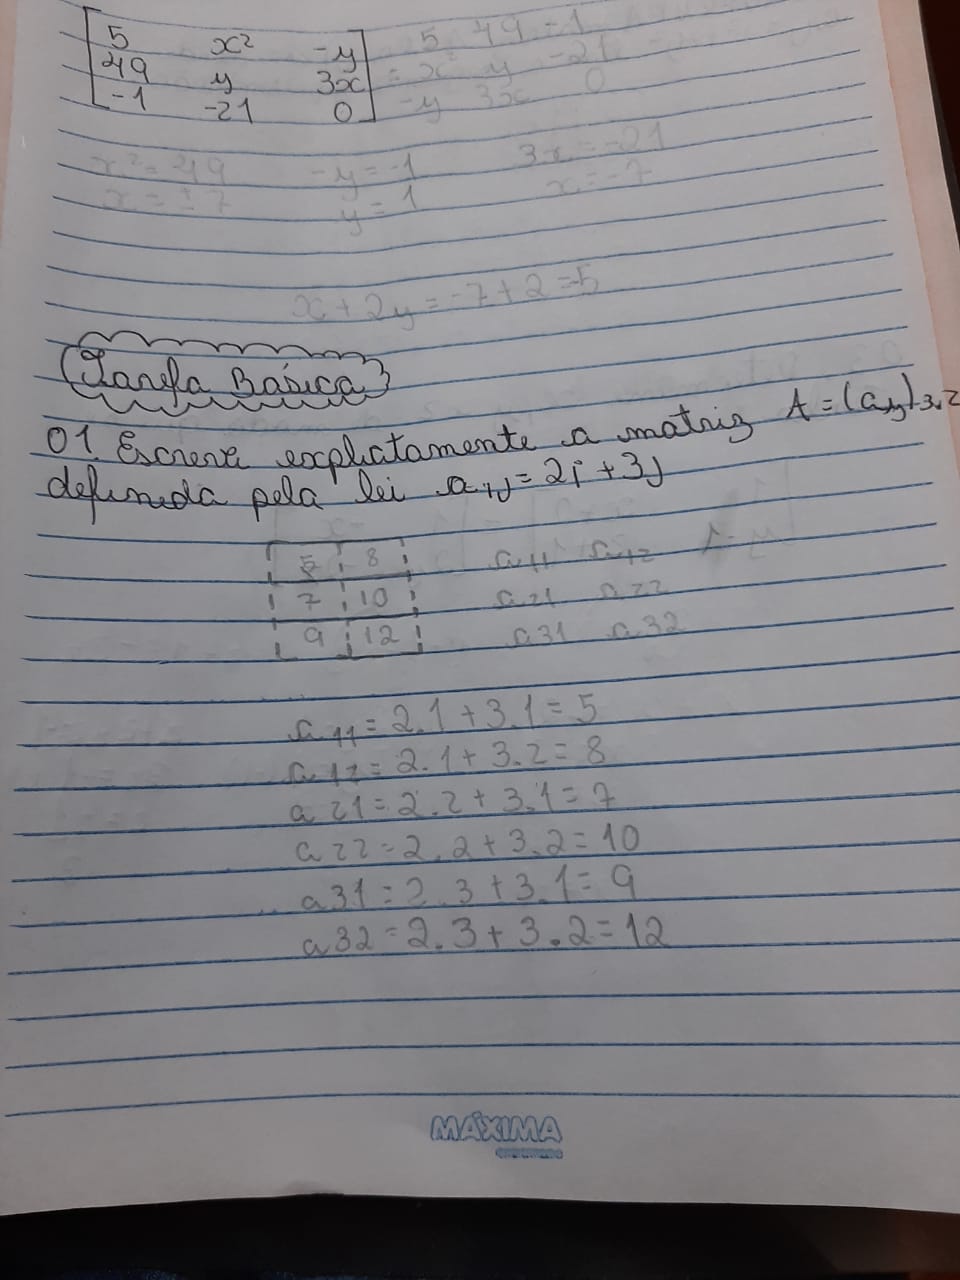 5 x² -y 5 49 -1
49 y 3x = x² y -21
-1 -21 0 -y 3x 0
x² = 49 -y = -1 3x = -21
x = ±7 y = 1 x = -7
x + 2y = -7 + 2 = -5
Tarefa Básica
01. Escreva explicitamente a matriz A = (aij)3x2
definida pela lei aij = 2i + 3j
5 8 a11 a12
7 10 a21 a22
9 12 a31 a32
a11 = 2.1 + 3.1 = 5
a12 = 2.1 + 3.2 = 8
a21 = 2.2 + 3.1 = 7
a22 = 2.2 + 3.2 = 10
a31 = 2.3 + 3.1 = 9
a32 = 2.3 + 3.2 = 12
MÁXIMA